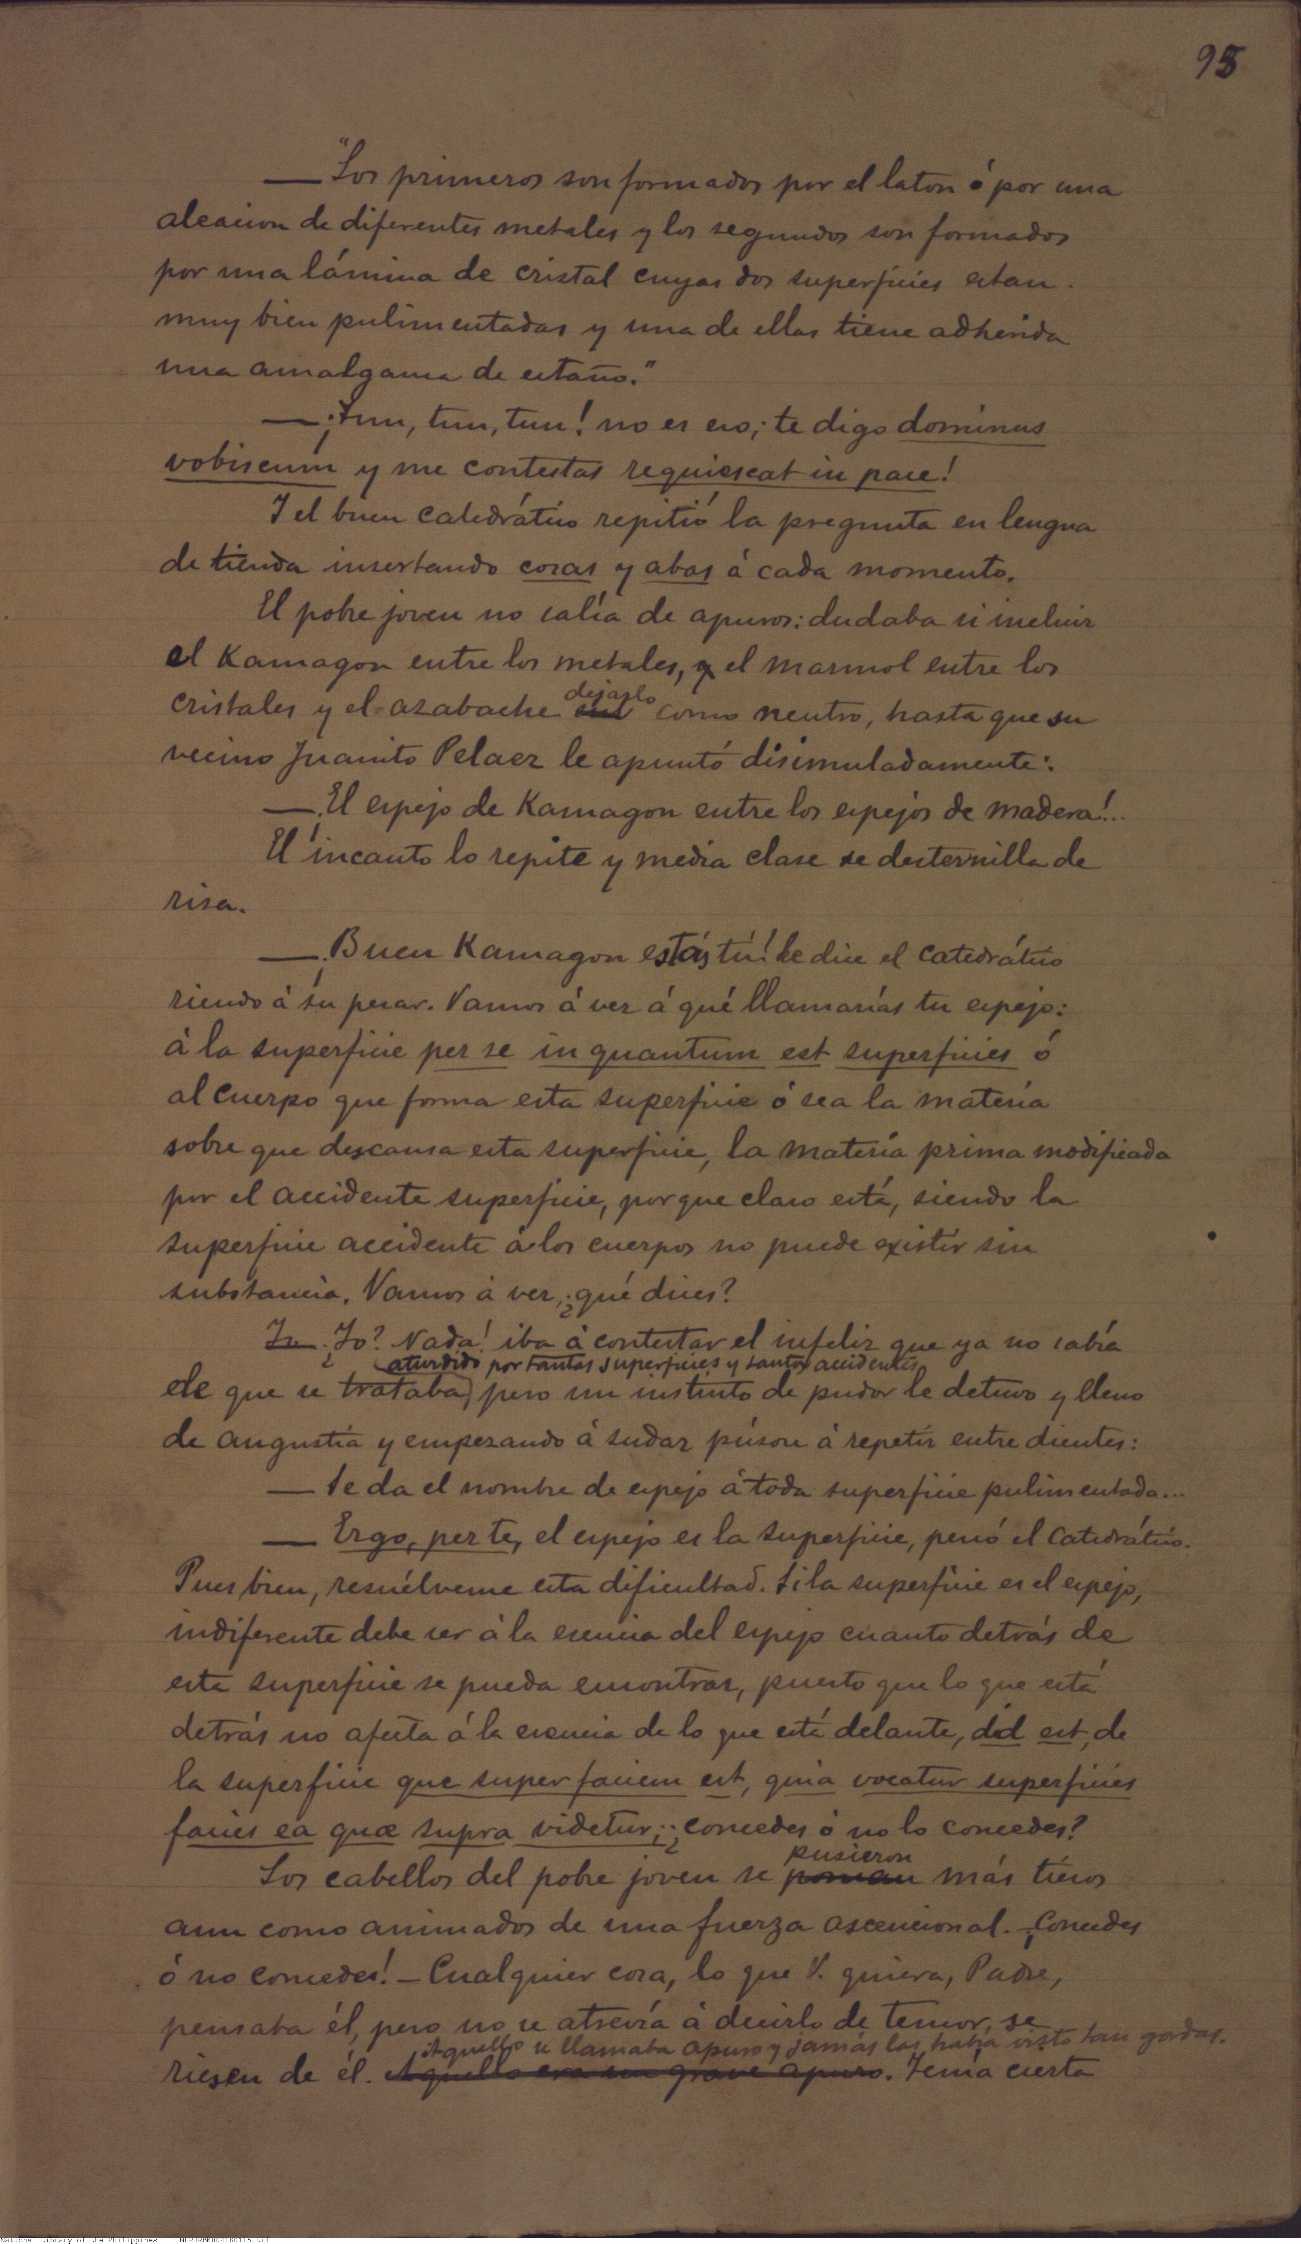 95
— "Los primeros son formados por el laton ó por una
aleacion de diferentes metales y los segundos son formados
por una lámina de cristal cuyas dos superficies estan
muy bien pulimentadas y una de ellas tiene adherida
una amalgama de estaño."
— ¡Tun, tun, tun! no es eso; te digo dominus
vobiscum y me contestas requiescat in pace!
Y el buen catedrático repitió la pregunta en lengua
de tienda insertando cosas y abas á cada momento.
El pobre joven no salía de apuros: dudaba si incluir
el Kamagon entre los metales, y el marmol entre los
dejarlo
cristales y el azabache como neutro, hasta que su
vecino Juanito Pelaez le apuntó disimuladamente:
— ¡El espejo de Kamagon entre los espejos de madera!...
El incauto lo repite y media clase se desternilla de
risa.
— ¡Buen Kamagon estás tú! le dice el catedrático
riendo á su pesar. Vamos á ver á qué llamarías tu espejo:
á la superficie per se in quantum est superficies ó
al cuerpo que forma esta superficie ó sea la materia
sobre que descansa esta superficie, la materia prima modificada
por el accidente superficie, porque claro está, siendo la
superficie accidente á los cuerpos no puede existir sin
substancia. Vamos á ver, ¿qué dices?
— ¿Yo? Nada! iba á contestar el infeliz que ya no sabía
aturdido por tantas superficies y tantos accidentes
de que se trataba pero un instinto de pudor le detuvo y lleno
de angustia y empezando á sudar púsose á repetir entre dientes:
— Se da el nombre de espejo á toda superficie pulimentada...
— Ergo, per te, el espejo es la superficie, pescó el catedrático.
Pues bien, resuélveme esta dificultad. Si la superficie es el espejo,
indiferente debe ser á la esencia del espejo cuanto detrás de
esta superficie se pueda encontrar, puesto que lo que está
detrás no afecta á la esencia de lo que está delante, id est, de
la superficie que super faciem est, quia vocatur superficies
facies ea quæ supra videtur; ¿concedes ó no lo concedes?
pusieron
Los cabellos del pobre joven se ponian más tiesos
aun como animados de una fuerza ascencional. — ¡Concedes
ó no concedes! — Cualquier cosa, lo que V. quiera, Padre,
pensaba él, pero no se atrevía á decirlo de temor se
Aquello se llamaba apuro y jamás las había visto tan gordas.
riesen de él. Aquello era un grave apuro. Tenía cierta